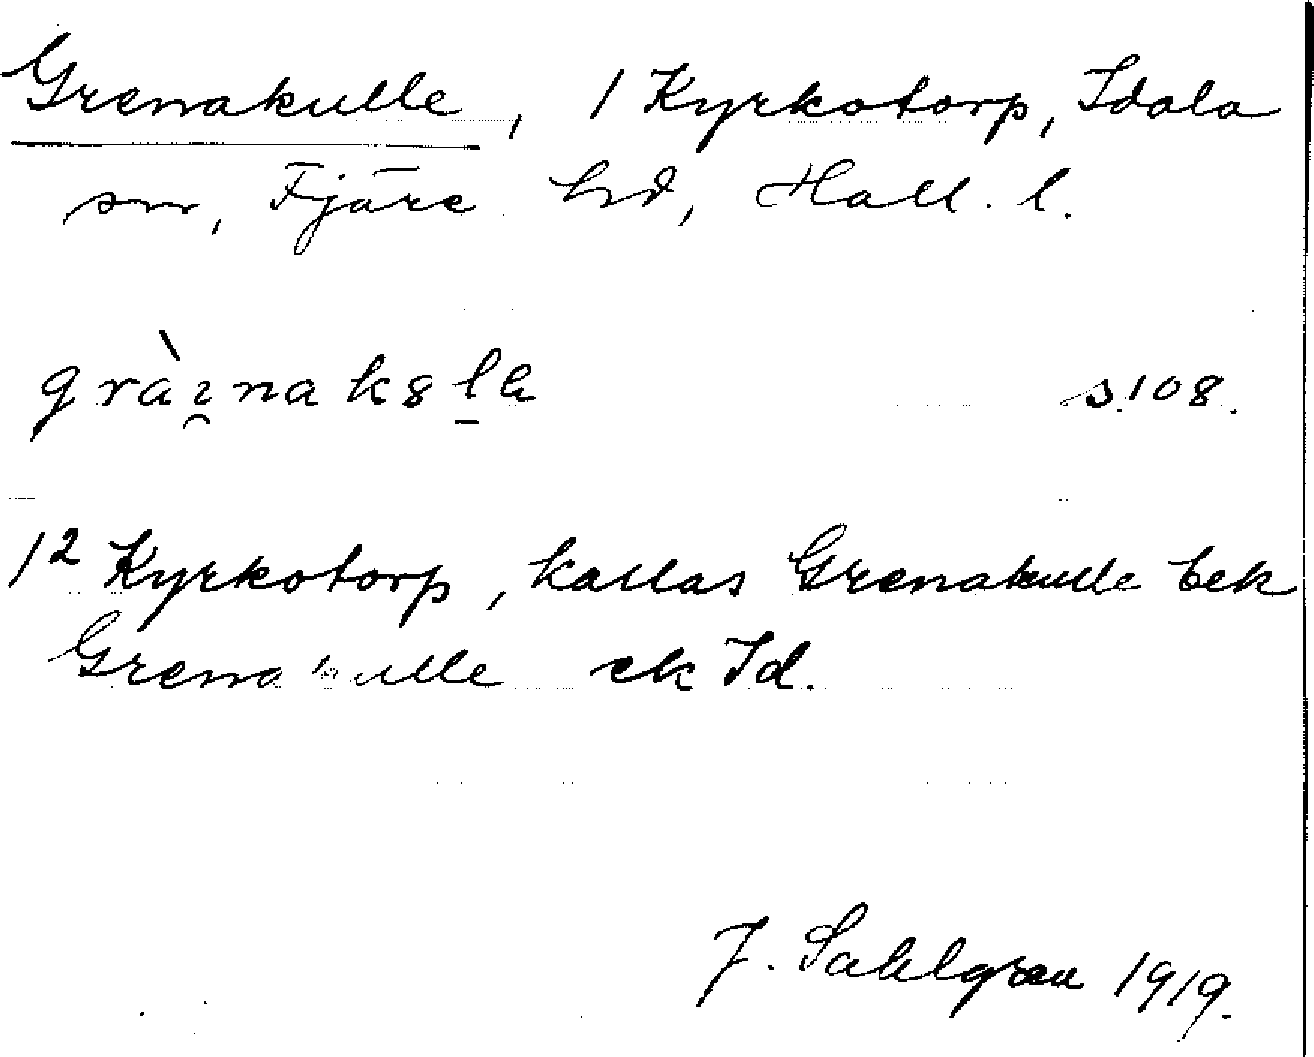 Grenakulle, 1 Kyrkotorp, Idala
sn, Fjäre hd, Hall. l.
gràɪ̯nak8l̠a s.108.
1² Kyrkotorp, kallas Grenakulle bek
Grenakulle ek Id.
J. Sahlgren 1919.